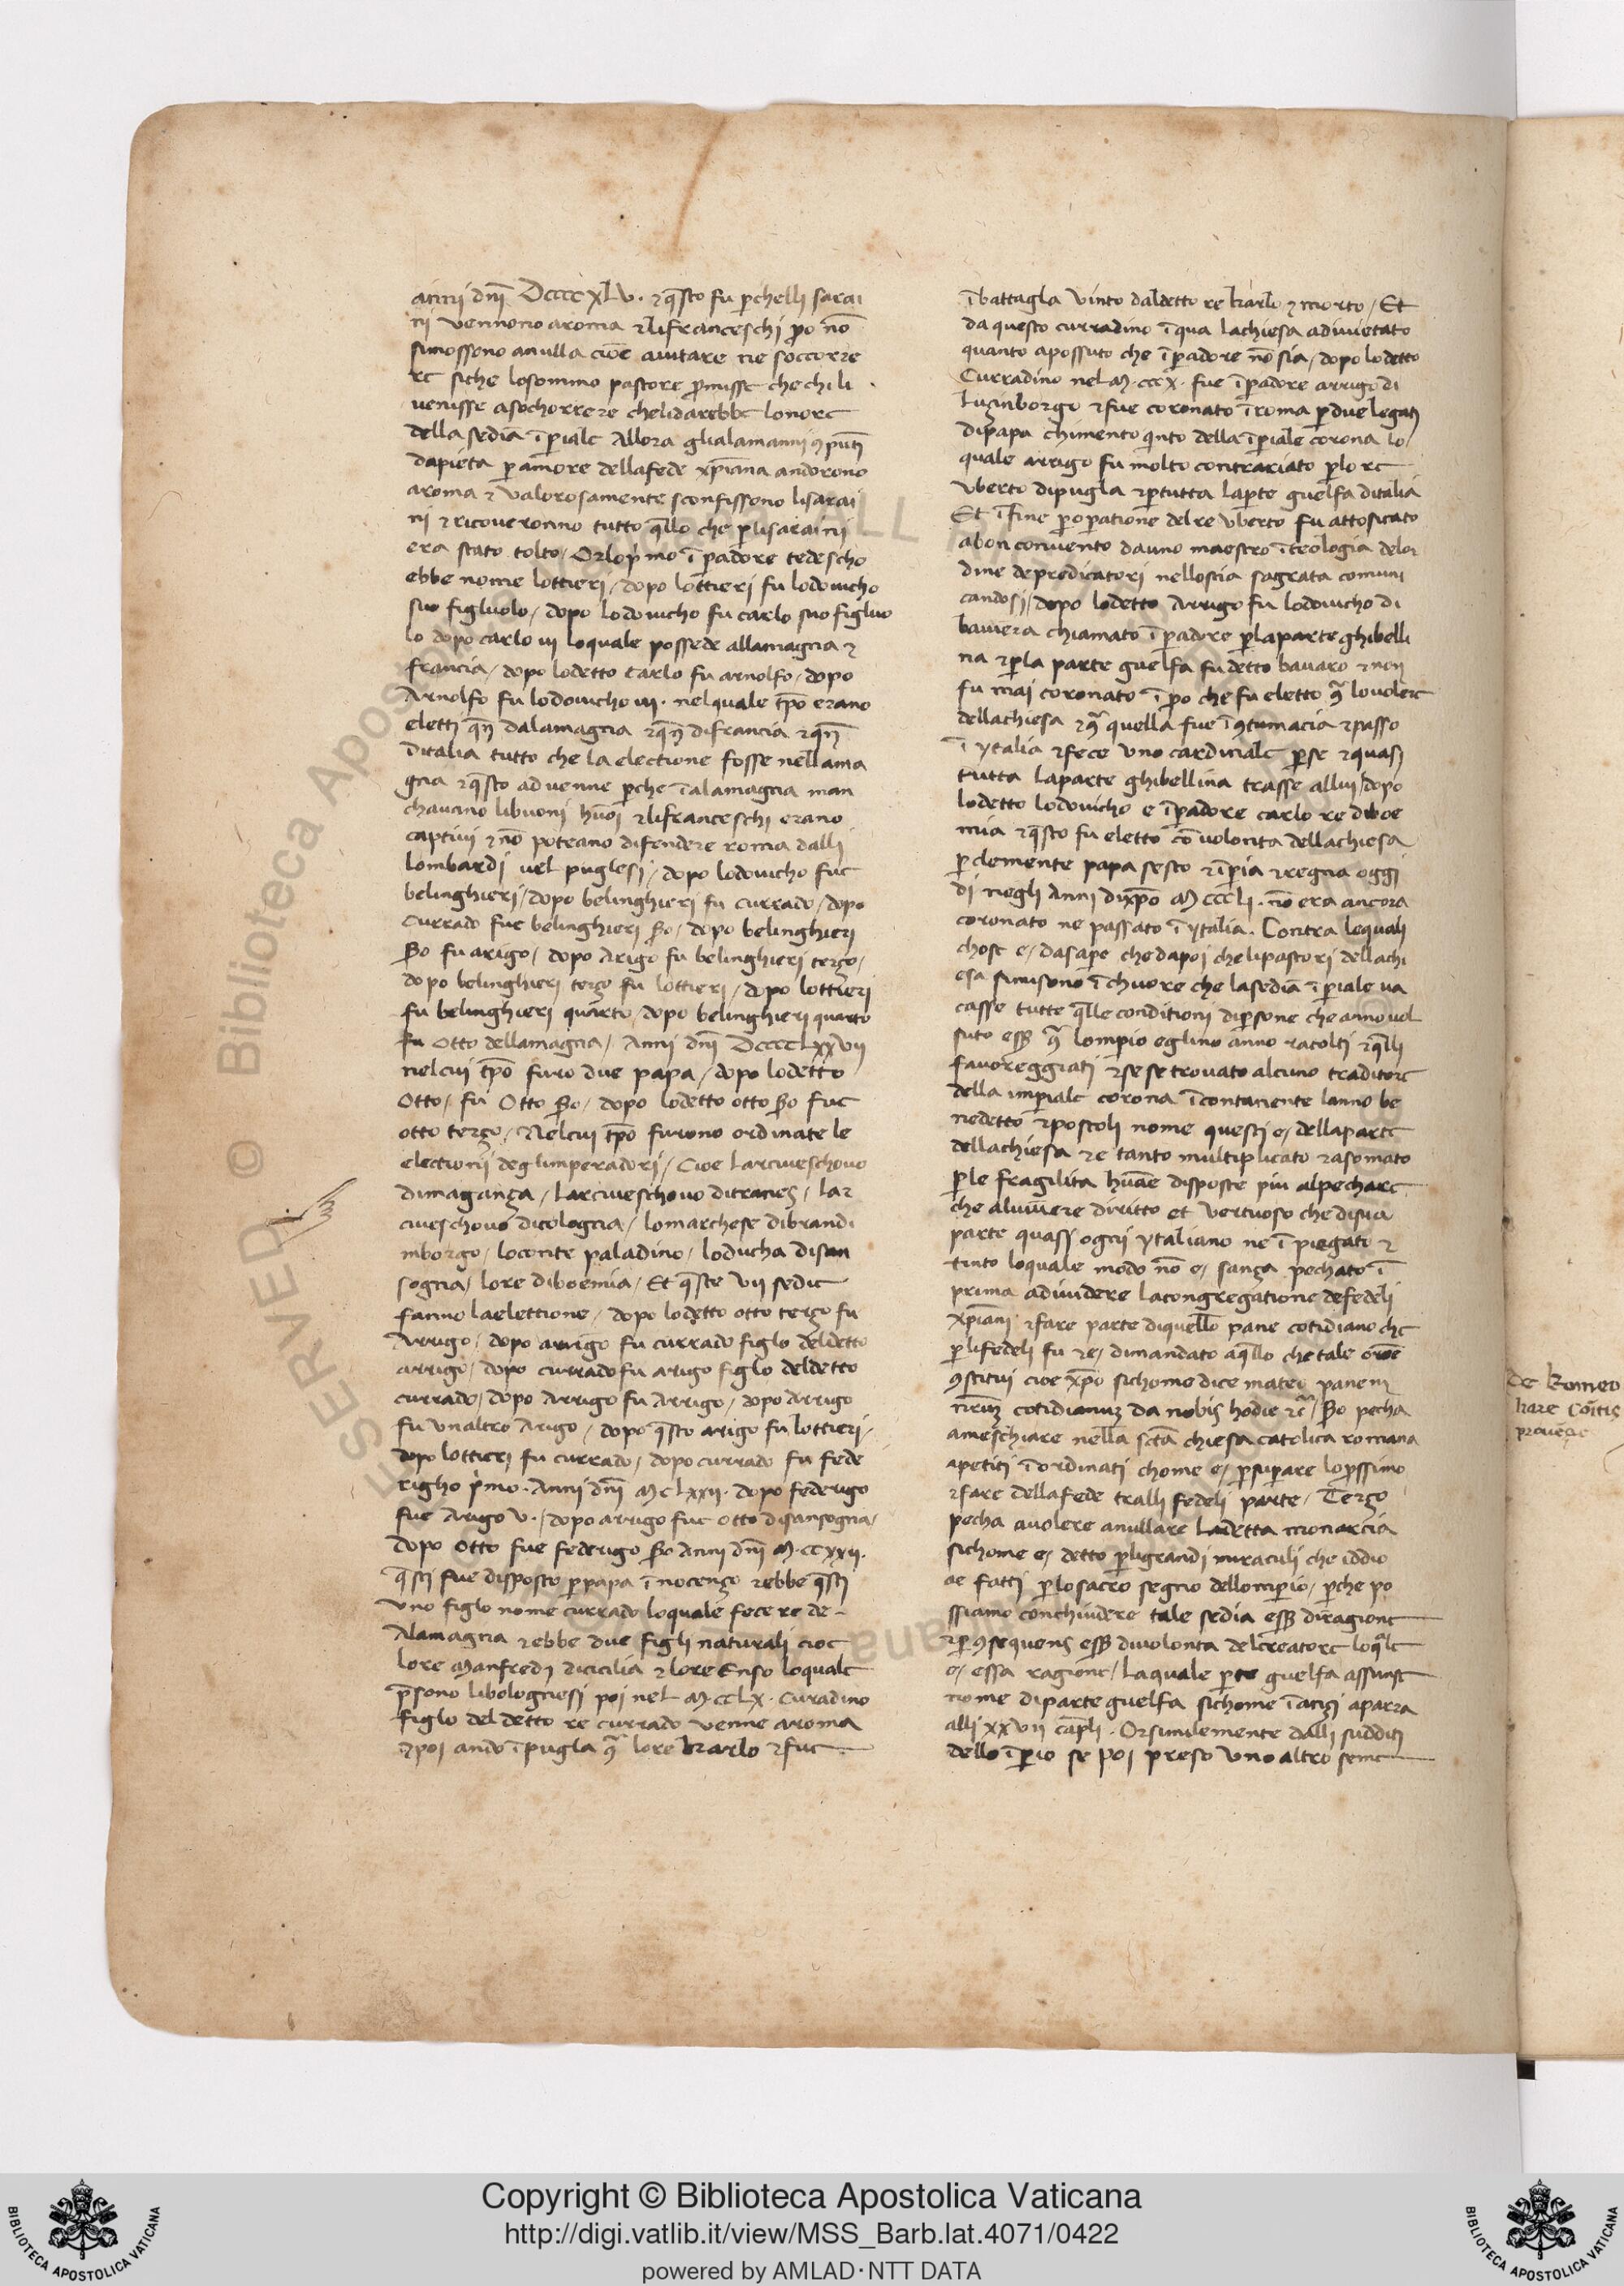 anni dnī Dcccc xlv. ⁊ q̄sto fu ꝑchelli sarai
ni vennono aroma ⁊ lifranceschi ꝑo nō
simossono anulla cioe aiutare ne soccorre
re siche losommo pastore ꝓmisse che chi li
venisse asochorrere chelidarebbe lonore
della sedia īꝑiale Allora glialamanni ꝯpūti
dapieta ꝑ amore dellafede xp̄iana andorono
aroma ⁊ valorosamente sconfissono lisarai
ni ⁊ ricoveronno tutto q̄llo che ꝑlisaraini
era stato tolto / Orlopͥmo īꝑadore tedescho
ebbe nome lottieri / dopo lottieri fu lodovicho
suo figluolo / dopo lodovicho fu carlo suo figluo
lo dopo carlo iii loquale possede allamagna ⁊
francia / dopo lodetto Carlo fu arnolfo / dopo
Arnolfo fu lodovicho iii. nelquale tp̄o erano
eletti q̄n̄ dalamagna ⁊ q̄n̄ difrancia ⁊ q̄n̄
ditalia tutto che la electione fosse nellama
gna ⁊ q̄sto advenne ꝑche īalamagna man
chavano libuoni hūoī ⁊ lifranceschi erano
captivi ⁊ nō poteano difendere roma dalli
lombardi vel puglesi / dopo lodovicho fue
belinghieri / dopo belinghieri fu currado / dopo
currado fue belinghieri s̄o / dopo belinghieri
s̄o fu arigo / dopo Arigo fu belinghieri terço /
dopo belinghieri terço fu lottieri / dopo lottieri
fu belinghieri quarto / dopo belinghieri quarto
fu Otto dellamagna / Anni dnī DccccLxxvii
nelcui tp̄o furo due papa / dopo lodetto
Otto / fu Otto s̄o / dopo lodetto otto s̄o fue
otto terço / Nelcui tp̄o furono ordinate le
electioni deglimperadori / Cioe larciveschovo
dimagança / larciveschovo ditraneş / lar
civeschovo dicologna / lomarchese dibrandi
nborgo / loconte paladino / loducha disan
sogna / lore diboemia / Et q̄ste vii sedie
fanno laelettione / dopo lodetto otto terço fu
Arrigo / dopo arrigo fu currado figlo deldetto
arrigo / dopo currado fu arigo figlo deldetto
currado / dopo Arrigo fu Arrigo / dopo Arrigo
fu unaltro Arigo / dopo q̄sto arigo fu lottieri /
dopo lottieri fu currado / dopo currado fu fede
righo pͥmo. Anni dnī Mclxxii. dopo federigo
fue Arigo v. / dopo arrigo fue otto disansogna /
dopo otto fue federigo s̄o Anni dnī M.ccxxii.
q̄sti fue disposto ꝑ papa īnocenço ⁊ ebbe q̄sti
uno figlo nome currado loquale fece re de
Alamagna ⁊ ebbe due figli naturali cioe
lore Manfredi dicicilia ⁊ lore Enso loquale
p̄sono libolognesi poi nel M.ccLx. Curadino
figlo del detto re currado venne aroma
⁊ poi ando īpugla ꝯͣ lore karlo ⁊ fue
ībattagla vinto daldetto re karlo ⁊ morto / Et
da questo curradino īqua lachiesa adivietato
quanto apossuto che īꝑadore nō sia / dopo lodetto
Curradino nel M.cccx. fue īꝑadore arrigo di
Luçinborgo ⁊ fue coronato īroma ꝑ due legati
dipapa chimento qͥnto della īꝑiale corona lo
quale arrigo fu molto contrariato ꝑlo re
Uberto dipugla ⁊ ꝑtutta laꝑte guelfa ditalia
Et īfine ꝑ oꝑatione del re Uberto fu attosicato
abon convento dauno maestro īteologia delor
dine depredicatori nellostia sagrata comuni
candosi / dopo lodetto Arrigo fu lodovicho di
baviera chiamato īꝑadore ꝑlaparte ghibelli
na ⁊ ꝑla parte guelfa fu detto bavaro ⁊ non
fu mai coronato īꝑo che fu eletto ꝯͣ lovolere
dellachiesa ⁊ ꝯͣ quella fue īꝯtumacia ⁊ passo
ī ytalia ⁊ fece uno cardinale ꝑse ⁊ quasi
tutta laparte ghibellina trasse allui / dopo
lodetto lodovicho e īꝑadore carlo re diboe
mia ⁊ q̄sto fu eletto cō volonta dellachiesa
ꝑ clemente papa sesto ⁊ īꝑia ⁊ regna oggi
di negli Anni dixp̄o McccLi. nō era ancora
coronato ne passato ī ytalia. Contra lequali
chose e / dasaꝑe che dapoi chelipastori dellachi
esa simisono īchuore che lasedia īꝑiale va
casse tutte q̄lle conditioni diꝑsone che annovol
suto ess̄ ꝯͣ lomperio eglino anno racolti ⁊ q̄lli
favoreggiati ⁊ se se trovato alcuno traditore
della imꝑiale corona īcontanente lanno be
nedetto ⁊ postoli nome questi e / dellaparte
dellachiesa ⁊ e tanto multiplicato ⁊ asomato
ꝑle fragilita hūane disposte piu alpechare
che alvivere diritto et vertuoso che disua
parte quasi ogni ytaliano ne īpiegato ⁊
tinto loquale modo nō e / sança pechato ī
prima adividere lacongregatione defedeli
xp̄iani ⁊ fare parte diquello pane cotidiano che
ꝑlifedeli fu ⁊ e / dimandato aq̄llo che tale oroē
ꝯstitui cioe xp̄o sichome dice mateo panem
nr̄uꝫ cotidianuꝫ da nobis hodie ⁊cͣ / s̄o pecha
ameschiare nella scā chiesa catolica romana
apetiti īordinati chome e / ꝑsuꝑare loꝓssimo
⁊ fare dellafede tralli fedeli parte / Terço
pecha avolere anullare ladetta monarcia
sichome e / detto ꝑligrandi miraculi che iddio
ae fatti ꝑlosacro segno dellomꝑio / ꝑche po
ssiamo conchiudere tale sedia ess̄ diragione
⁊ ꝑ ꝯsequens ess̄ divolonta delcreatore loq̄le
e / essa ragione / Laquale ꝑte guelfa assunse
nome diparte guelfa sichome īançi aparra
alli xxvii cap̄li. Orsimilemente dalli sudditi
dello īꝑio se poi preso uno altro seme
De Romeo